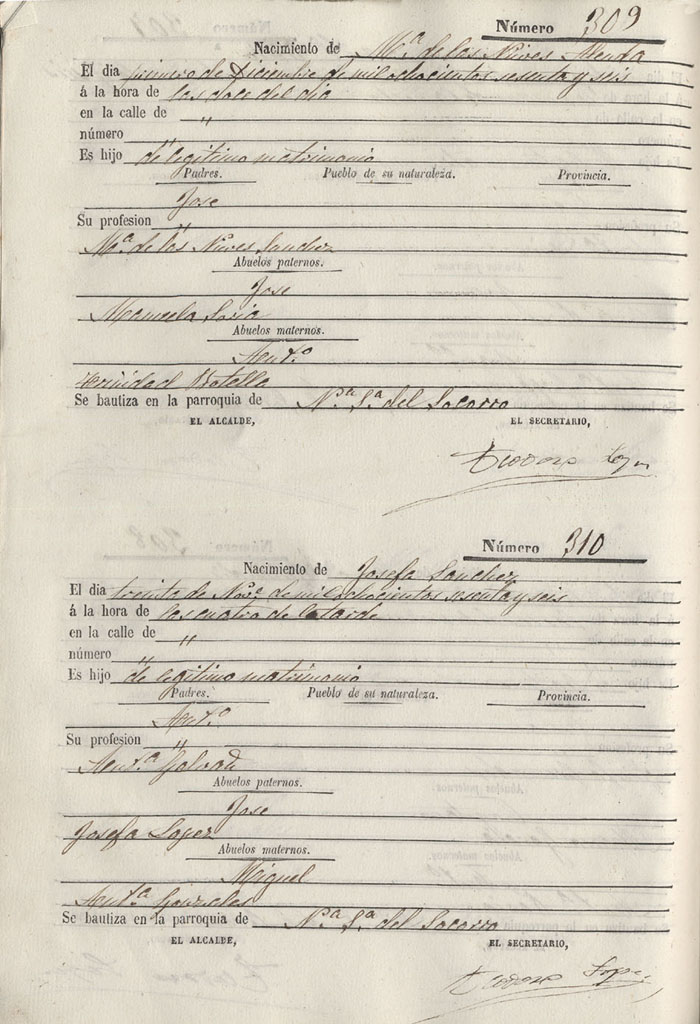 Número 309
Nacimiento de Mª de los Nieves
El dia primero de Diciembre de mil ochocientos sesenta y seis
á la hora de las doce del dia
en la calle de "
número "
Es hijo de legitimo matrimonio
Padres. Pueblo de su naturaleza. Provincia.
Jose
Su profesion "
Mª de los Nieves Sanchez
Abuelos paternos.
Jose
Manuela Soria
Abuelos maternos.
Antº
Trinidad Botella
Se bautiza en la parroquia de Nª Sª del Socorro
EL ALCALDE, EL SECRETARIO,
Teodoro Lopez
Número 310
Nacimiento de Josefa Sanchez
El dia treinta de Novᵉ de mil ochocientos sesenta y seis
á la hora de las cuatro de la tarde
en la calle de "
número "
Es hijo de legitimo matrimonio
Padres. Pueblo de su naturaleza. Provincia.
Antº
Su profesion "
Antª
Abuelos paternos.
Jose
Josefa Lopez
Abuelos maternos.
Miguel
Antª Gonzales
Se bautiza en la parroquia de Nª Sª del Socorro
EL ALCALDE, EL SECRETARIO,
Teodoro Lopez